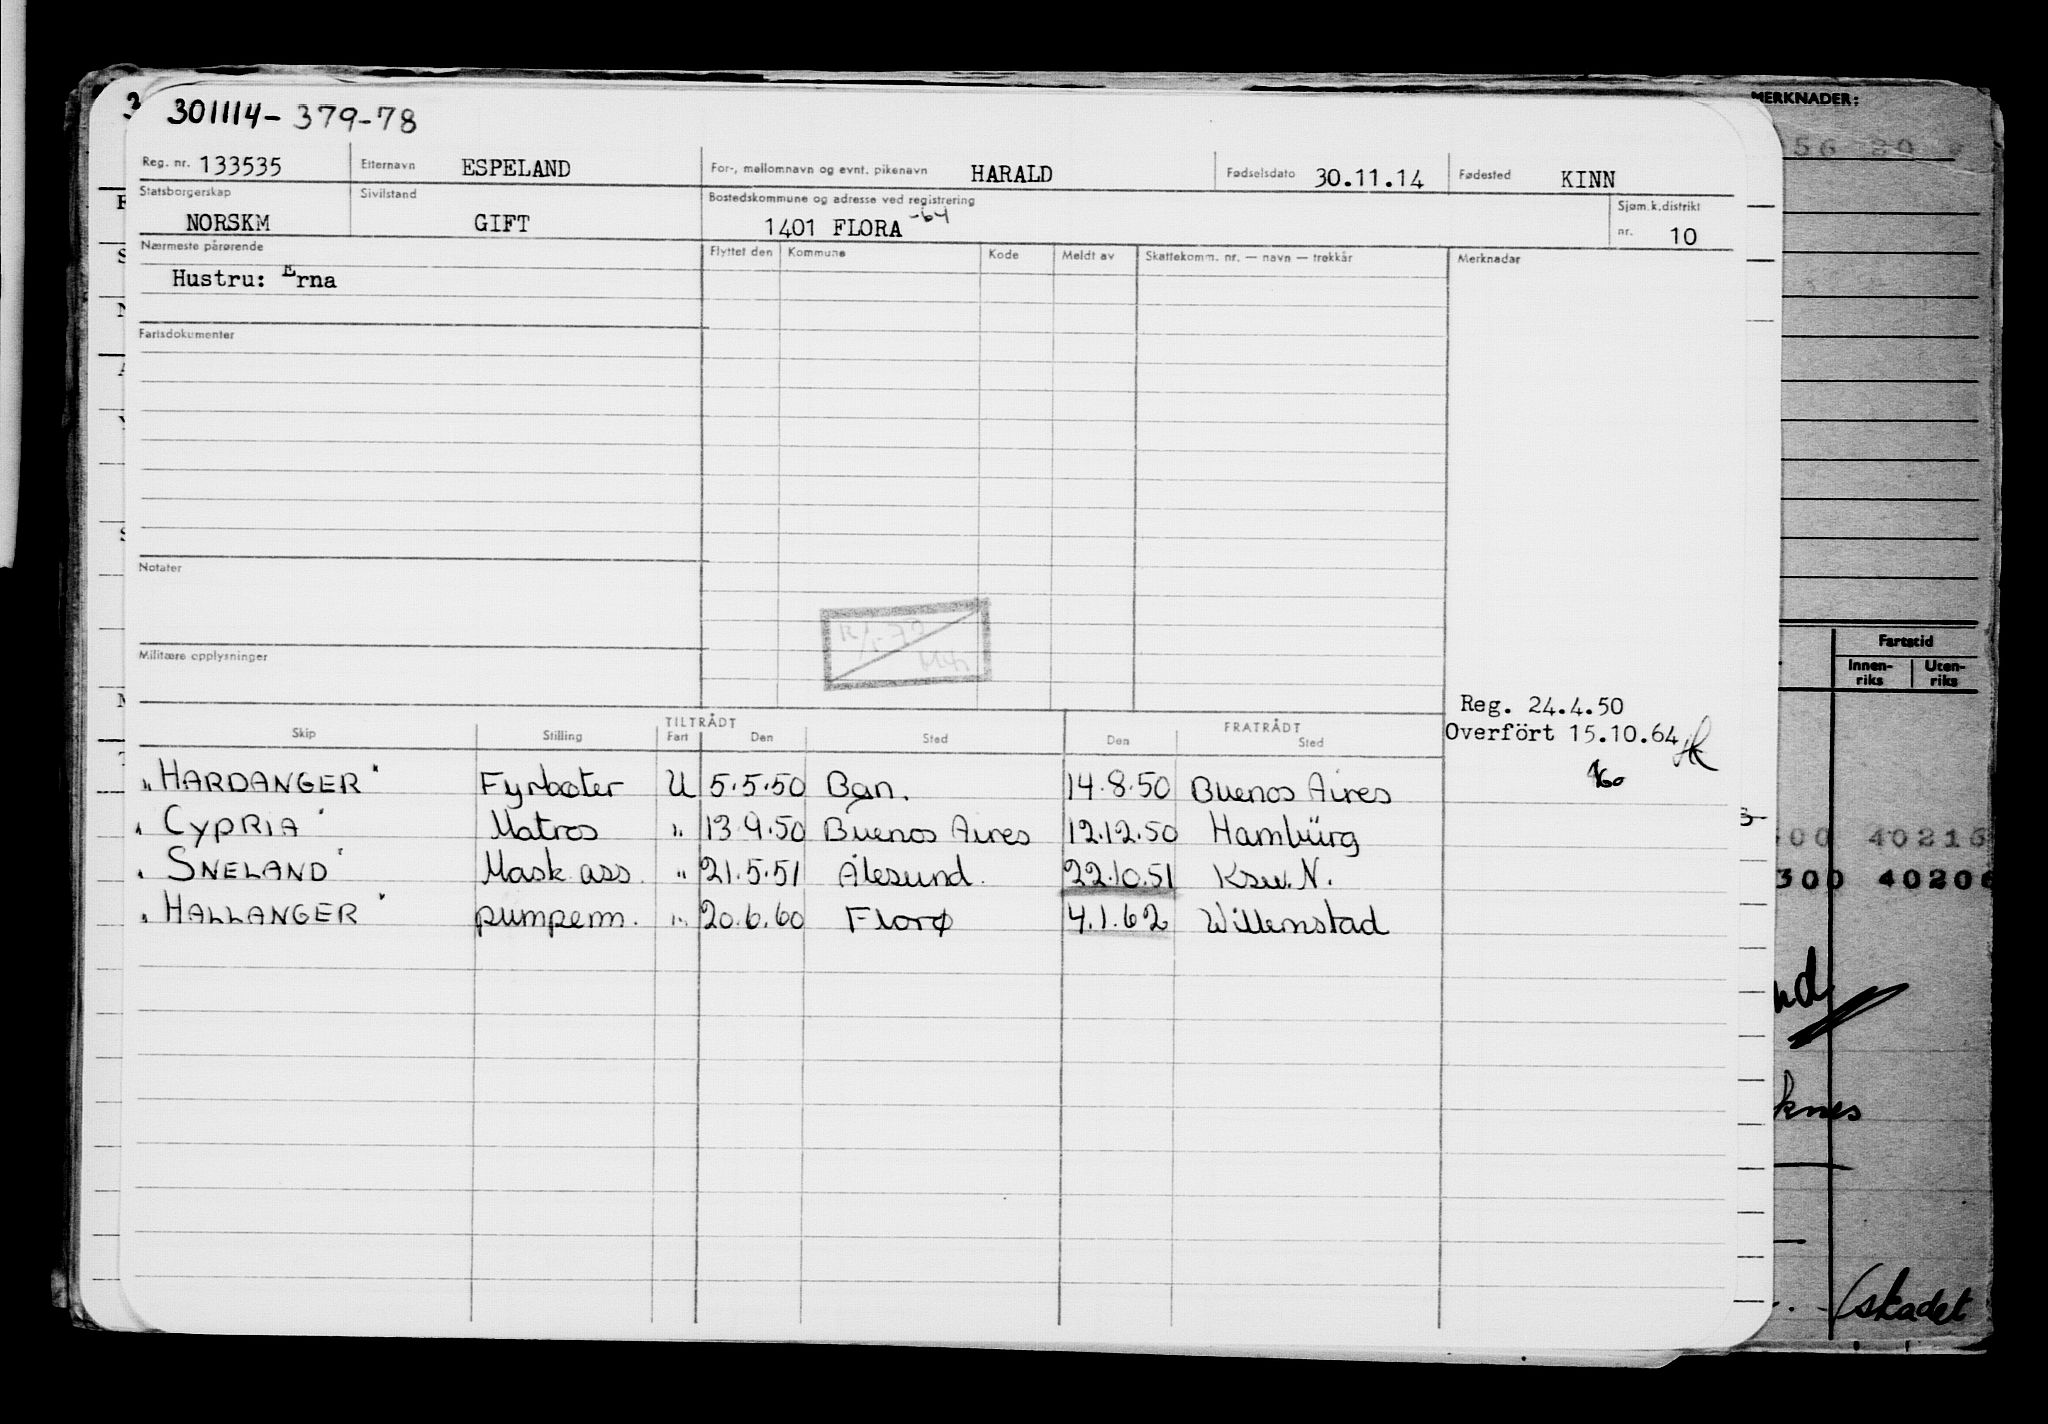 301114-379-78
MERKNADER:
Reg. nr. 133535 Etternavn ESPELAND For-, mellomnavn og evnt. pikenavn HARALD Fødselsdato 30.11.14 Fødested KINN
Statsborgerskap NORSKM Sivilstand GIFT Bostedskommune og adresse ved registrering 1401 FLORA -64 Sjøm.k.distrikt nr. 10
Nærmeste pårørende Flyttet den Kommune Kode Meldt av Skattekomm. nr. — navn — trekkår Merknader
Hustru: Erna
Fartsdokumenter
Notater
Militære opplysninger
Fartstid
Innen-riks Uten-riks
Reg. 24.4.50
Overfört 15.10.64
TILTRÅDT FRATRÅDT
Skip Stilling Fart Den Sted Den Sted
"HARDANGER" Fyrbøter U 5.5.50 Ban. 14.8.50 Buenos Aires
"CYPRIA" Matros " 13.9.50 Buenos Aires 12.12.50 Hambürg
"SNELAND" Mask ass. " 21.5.51 Ålesund. 22.10.51 Ksu.N.
"HALLANGER" pumpem. " 20.6.60 Florø 4.1.62 Willemstad
40216
300 40206
(skadet